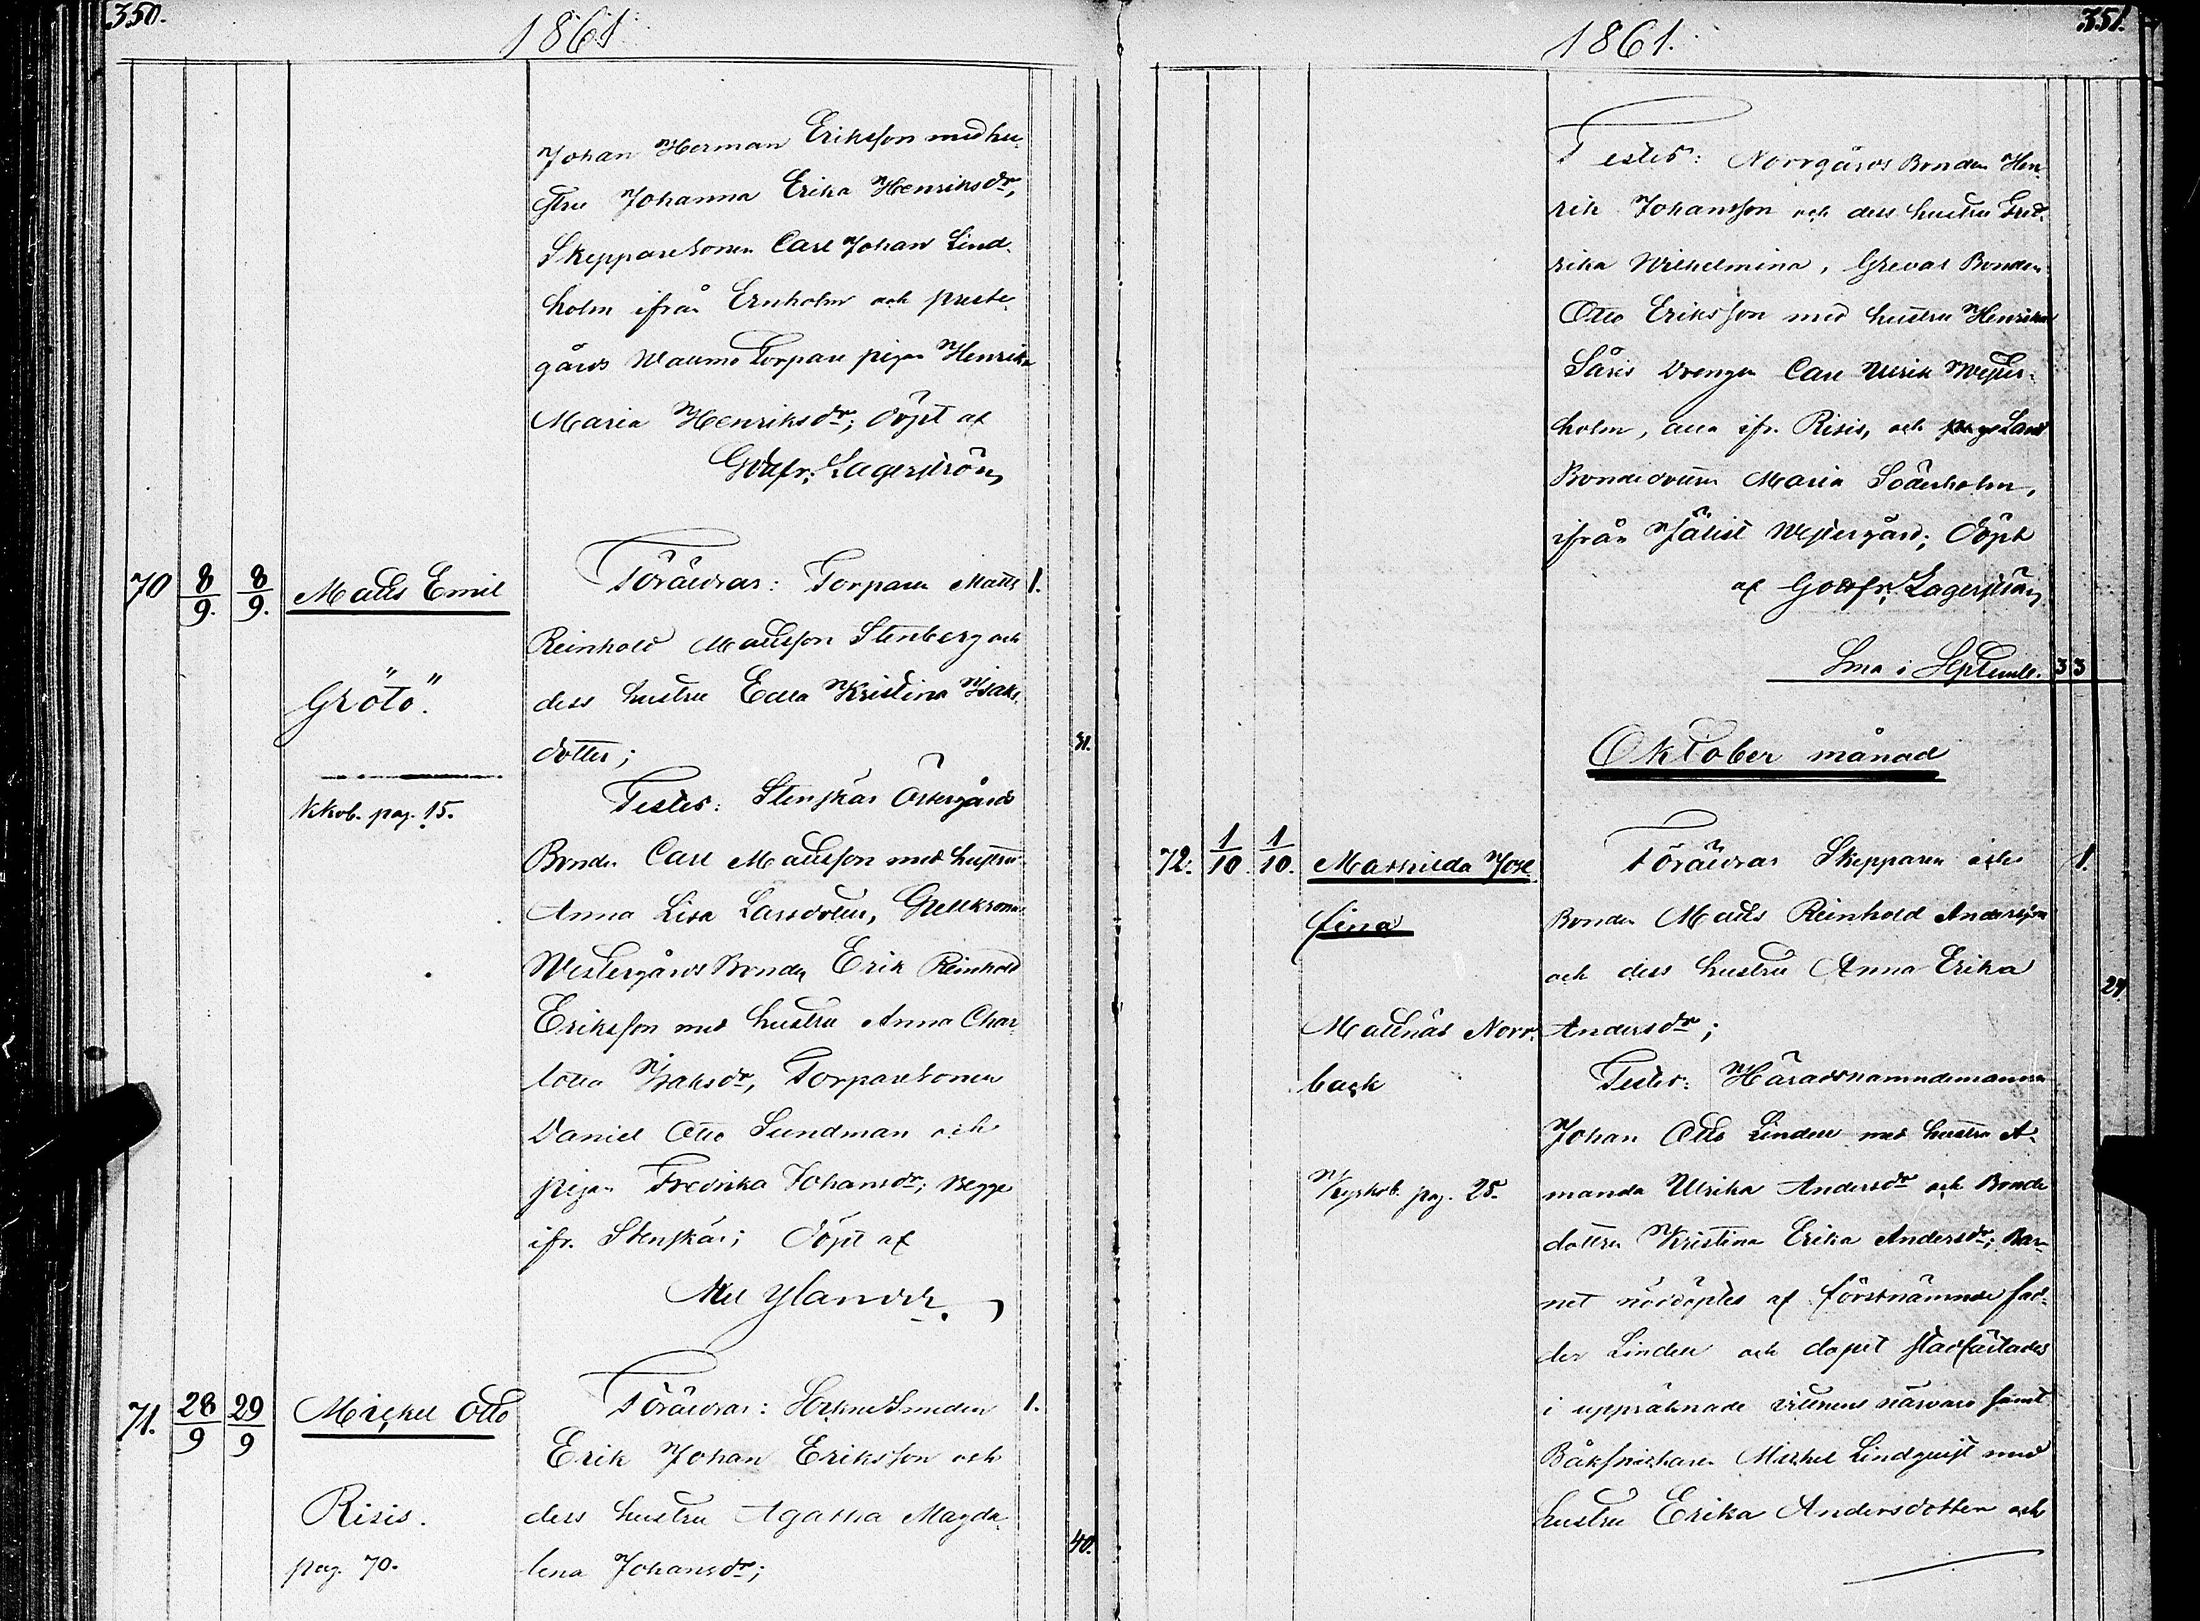 350.
1861
Johan Herman Eriksson med hu-
stru Johanna Erika Henriksdr,
Skepparesonen Carl Johan Lind-
holm ifrån Ernholm och preste-
gårds Torpare pigan Henrika
Maria Henriksdr; döpt af
Gottfr. Lagerström
70 8/9. 8/9. Matts Emil Föräldrar: Torparen Matts 1.
Reinhold Mattsson Stenberg och
Grötö. dess hustru Edla Kristina Isaks-
dotter; 31.
Testes: Stenskär Östergårds
Kkob. pag. 15.
Bonden Carl Mattsson med hustru
Anna Lisa Larsdotter, Grellkrona
Westergårds Bonden Erik Reinhold
Eriksson med hustru Anna Char-
lotta Isaksdr, Torparesonen
Daniel Otto Sundman och
pigan Fredrika Johansdr; begge
ifr. Stenskär; döpt af
Ylander
71. 28/9 29/9 Mickel Otto Föräldrar: Sockne Smeden 1.
Erik Johan Eriksson och
Risis. dess hustru Agatha Magda-
40.
pag. 70. lena Johansdr;
351.
1861.
Testes: Norrgårds Bonden Hen-
rik Johansson och dess hustru Fred-
rika Wilhelmina, Grevas Bonden
Otto Eriksson med hustru Henrika
Såris Drengen Carl Ulrik Wester-
holm, alla ifr. Risis, och
Bondedottren Maria Söderholm,
ifrån Westergård; Döpt
af Gottfr. Lagerström
Sma i Septemb. 33
Oktober månad
72. 1/10. 1/10. Mathilda Jose- Föräldrar Skepparen och 1.
fina Bonden Matts Reinhold Andersson
och dess hustru Anna Erika
27
Mattnäs Norr- Andersdr;
back Testes: Häradsnämndemannen
Johan Otto Lindell med hustru A-
Kyrkob. pag. 25. manda Ulrika Andersdr och Bonde
dottren Kristina Erika Andersdr; Bar-
net nöddöptes af förstnämnde fad-
der Lindell och dopet stadfästades
i uppräknade vittnens närvaro samt
Båkfiskaren Mickel Lindqvist med
hustru Erika Andersdotter och